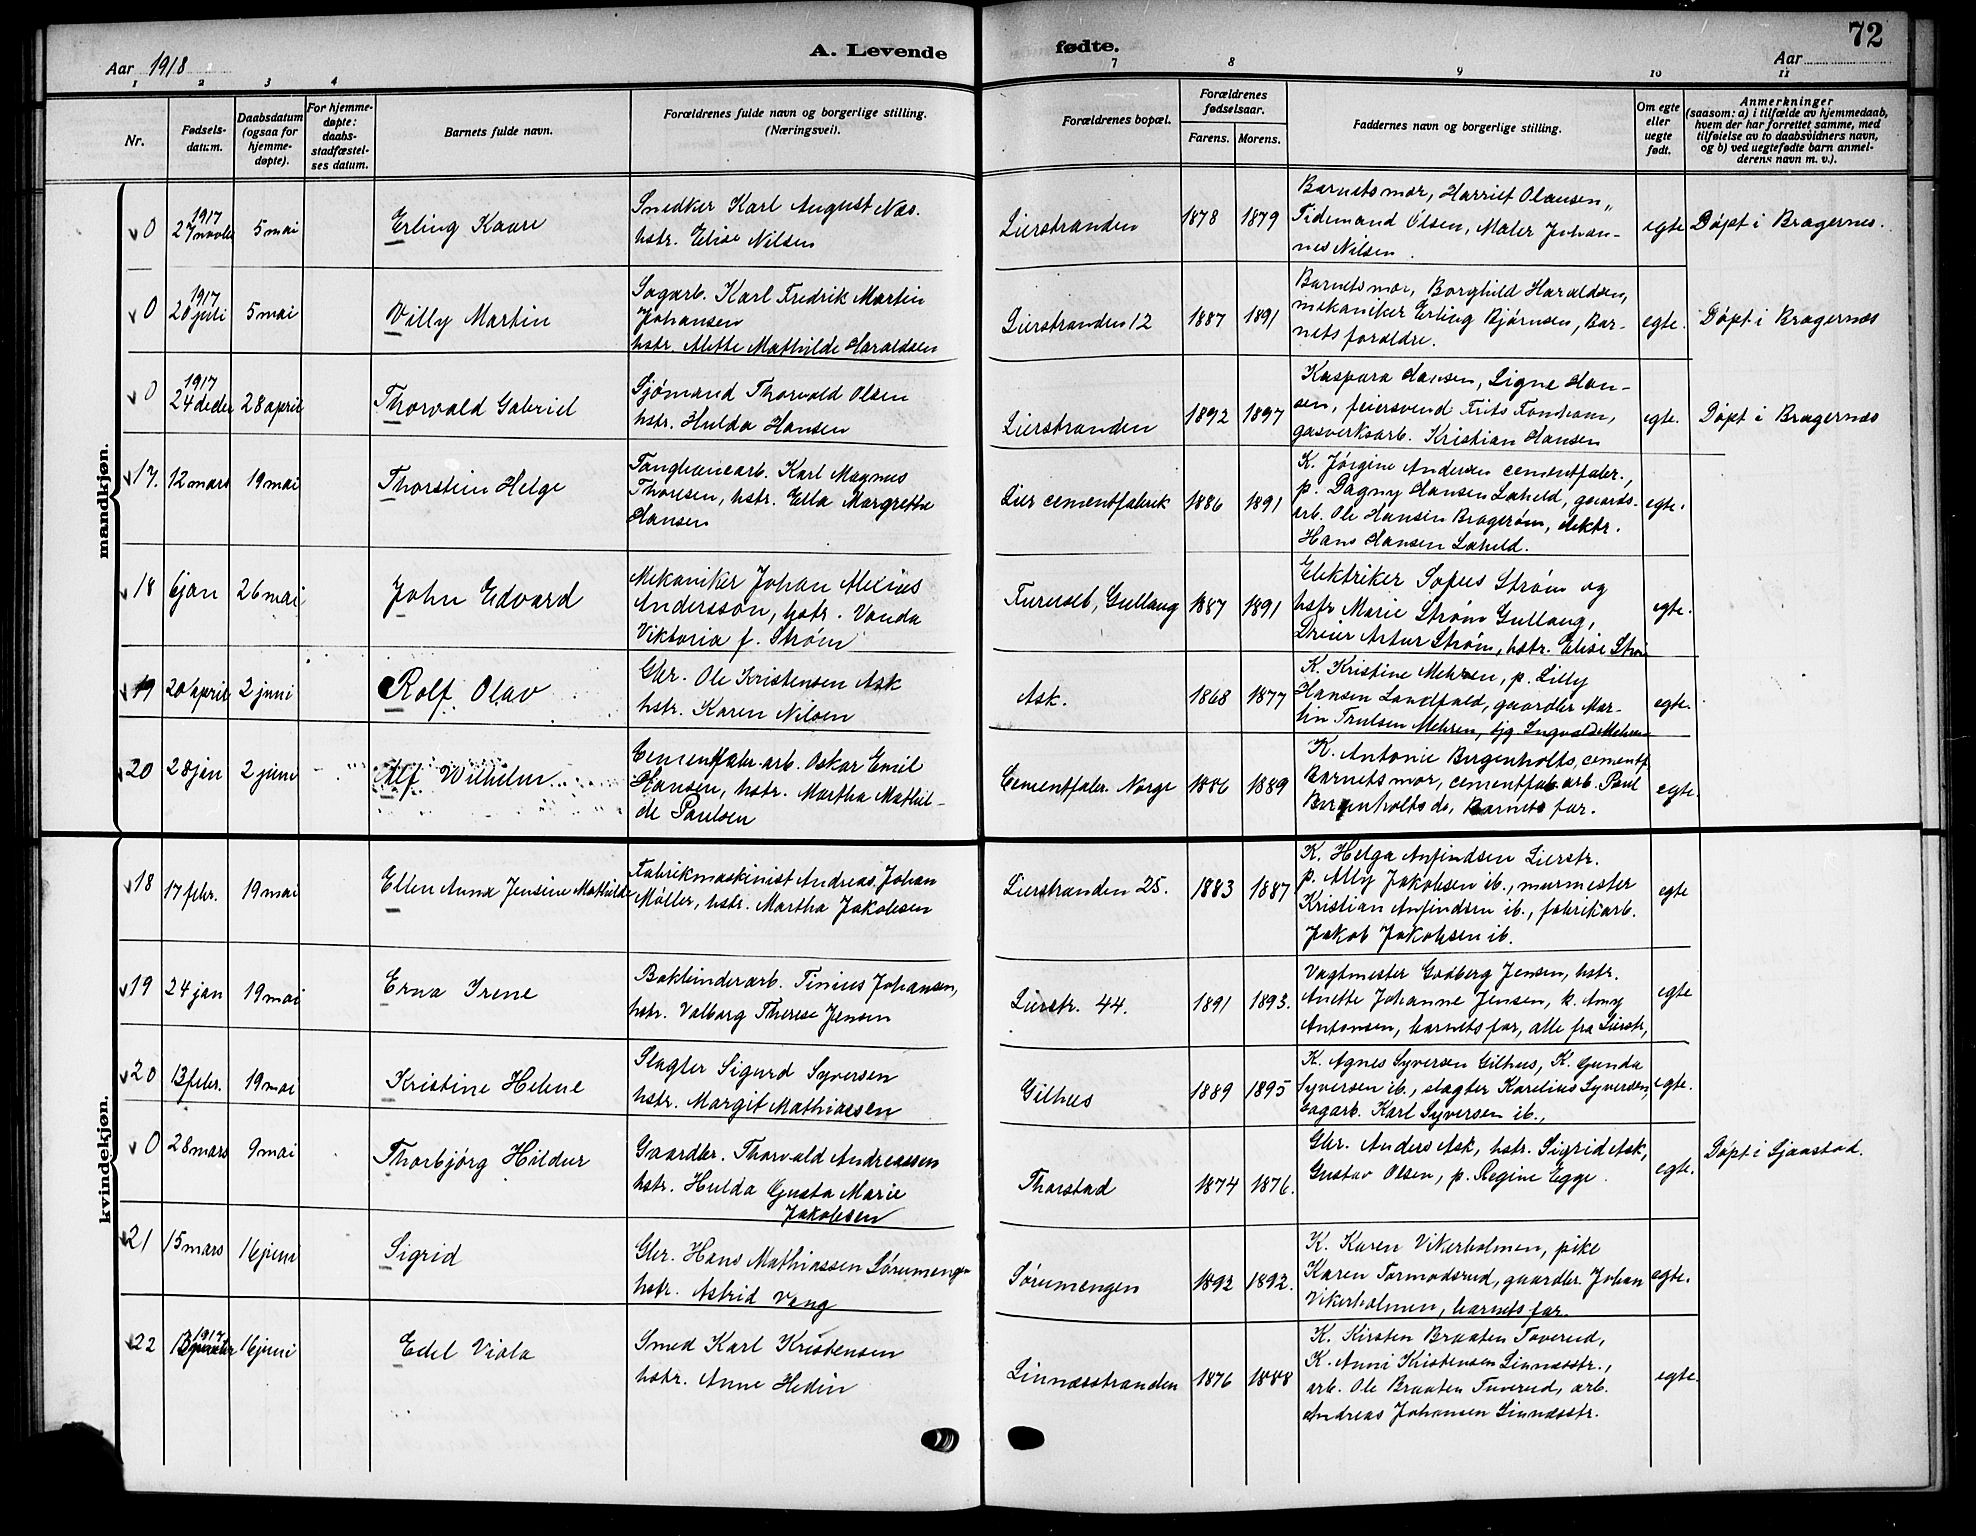 72
A. Levende fødte.
Aar 1918
Aar
1 2 3 4 7 8 9 10 11
Nr.
Fødsels-
datum.
Daabsdatum
(ogsaa for
hjemme-
døpte).
For hjemme-
døpte:
daabs-
stadfæstel-
ses datum.
Barnets fulde navn.
Forældrenes fulde navn og borgerlige stilling.
(Næringsvei).
Forældrenes bopæl.
Forældrenes
fødselsaar.
Farens. Morens.
Faddernes navn og borgerlige stilling.
Om egte
eller
uegte
født.
Anmerkninger
(saasom: a) i tilfælde av hjemmedaab,
hvem der har forrettet samme, med
tilføielse av to daabsvidners navn,
og b) ved uegtefødte barn anmel-
derens navn m. v.).
mandkjøn.
0
1917
27 novbr
5 mai
Erling Kaare
Snedker Karl August Næs.
hstr. Elise Nilsen
Lierstranden
1878 1879
Barnets mor, Harriet Olausen,
Tidemand Olsen, Maler Johan-
nes Nilsen.
egte
Døpt i Bragernes.
0
1917
20 juli
5 mai
Villy Martin
Sagarb. Karl Fredrik Martin
Johansen
hstr. Alette Mathilde Haraldsen
Lierstranden 12
1887 1891
Barnets mor, Borghild Haraldsen,
mekaniker Erling Bjørnsen, Bar-
nets forældre.
egte.
Døpt i Bragernæs
0
1917
24 decbr
28 april
Thorvald Gabriel
Sjømand Thorvald Olsen
hstr. Hulda Hansen
Lierstranden
1892 1897
Kaspara Hansen, Signe Han-
sen, feiersvend Frits
gasverksarb. Kristian Hansen
egte.
Døpt i Bragernæs
17.
12 mars
19 mai
Thorstein Helge
Karl Magnus
Thoresen, hstr. Ella Margrethe
Hansen
Lier cementfabrik
1886 1891
K. Jørgine Andersen cementfabr.,
p. Dagny Hansen Løheld, gaards-
arb. Ole Hansen Bragerøen, elektr.
Hans Hansen Løheld.
egte.
18
6 jan
26 mai
John Edvard
Mekaniker Johan Alexius
Andersson, hstr. Vanda
Viktoria f. Strøm
Gullaug
1887 1891
Elektriker Sofus Strøm og
hstr Marie Strøm Gullaug,
Artur Strøm, hstr. Elise Strøm
egte.
19
20 april
2 juni
Rolf Olav
Gbr. Ole Kristensen Ask
hstr. Karen Nilsen
Ask.
1868 1877
K. Kristine Mehren, p. Lilly
Hansen Landfald, gaardbr Mar-
tin Trulsen Mehren, Ingvald Mehren
egte.
20
28 jan
2 juni
Alf Wilhelm
Cementfabr. arb. Oskar Emil
Hansen, hstr. Martha Mathil-
de Paulsen
Cementfabr. Norge
1886 1889
K. Antonie Bergenholts, cementf
Barnets mor, cementfab. arb. Paul
Bergenholts do, Barnets far.
egte.
kvindekjøn.
18
17 febr.
19 mai
Ellen Anna Jensine Mathilde
Fabrikmaskinist Andreas Johan
Møller, hstr. Martha Jakobsen
Lierstranden 25.
1883 1887
K. Helga Anfindsen Lierstr.
p. Ally Jakobsen ib., murmester
Kristian Anfindsen ib., fabrikarb.
Jakob Jakobsen ib.
egte
19
24 jan
19 mai
Erna Irene
Bokbinderarb. Tinius Johansen,
hstr. Valborg Therese Jensen
Lierstr. 44.
1891 1893.
Vagtmester Godberg Jensen, hstr.
Anette Johanne Jensen, k. Amy
Antonsen, barnets far, alle fra Lierstr,
egte
20
13 febr.
19 mai
Kristine Helene
Slagter Sigurd Syversen
hstr. Margit Mathiassen
Gilhus
1889 1895
K. Agnes Syversen Gilhus, K. Gunda
Syversen ib., slagter Karelius Syversen,
sagarb. Karl Syversen ib.,
egte.
0
28 mars
9 mai
Thorbjørg Hildur
Gaardbr. Thorvald Andreassen
hstr. Hulda Gusta Marie
Jakobsen
Thorstad
1874 1876.
Gbr. Anders Ask, hstr. Sigrid Ask,
Gustav Olsen, p. Regine Egge.
egte.
Døpt i Sjaastad.
21
15 mars
16 juni
Sigrid
Gbr. Hans Mathiassen Sørumengen
hstr. Astrid Vang
Sørumengen
1892 1892.
K. Karen Vikerholmen, pike
Karen Tormodsrud, gaardbr. Johan
Vikerholmen, barnets far.
egte.
22
1917
16 juni
Edel Viola
Smed Karl Kristensen
hstr. Anne Hedin
Linnæsstranden
1876 1888
K. Kirsten Braaten Tuverud,
K. Anni Kristensen Linnæsstr.,
arb. Ole Braaten Tuverud, arb.
Andreas Johansen Linnæsstr.
egte.